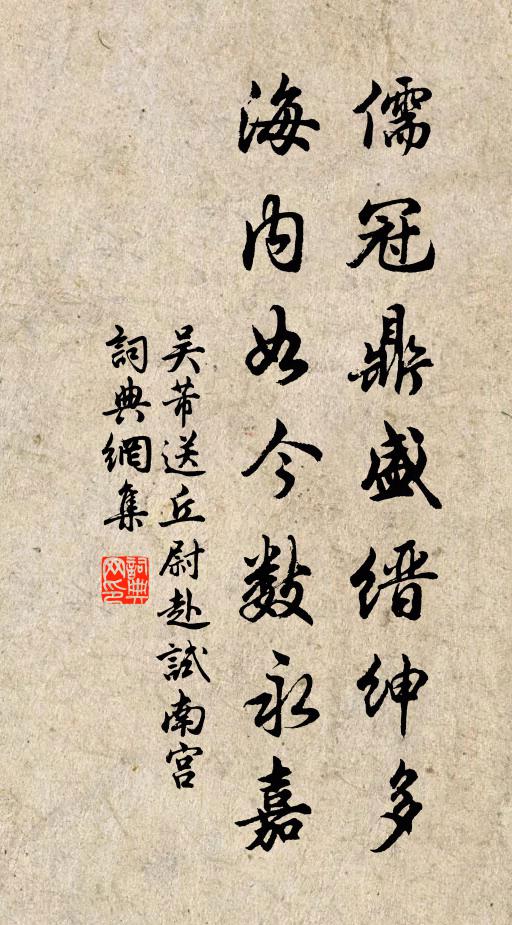 儒冠鼎盛缙绅多
海内如今数永嘉
吴芾送丘尉赴試南宮
詞典網集
詞典网印